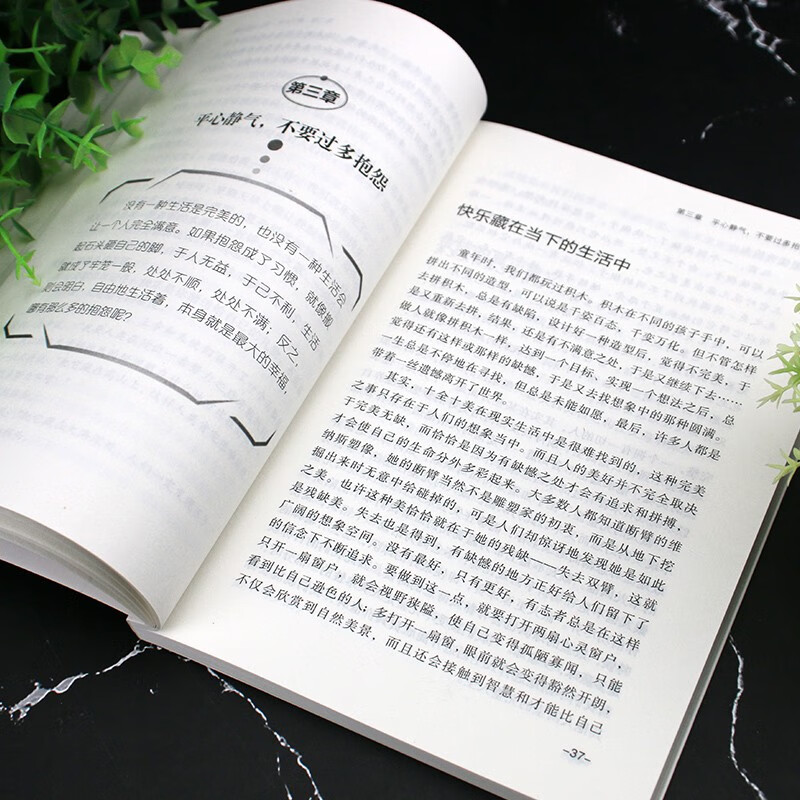 第三章
平心静气，不要过多抱怨
没有一种生活是完美的，也没有一种生活会
让一个人完全满意。如果抱怨成了习惯，就像搬
起石头砸自己的脚，于人无益，于己不利，生活
就成了牢笼一般，处处不顺，处处不满；反之，
则会明白，自由地生活着，本身就是最大的幸福，
哪有那么多的抱怨呢？
第三章 平心静气，不要过多抱
快乐藏在当下的生活中
童年时，我们都玩过积木。积木在不同的孩子手中，可以
拼出不同的造型，可以说是千姿百态，千变万化。但不管怎样
去拼积木，总是有缺陷，设计好一种造型后，觉得不完美，于
是又重新去拼，结果，还是有不满意之处，于是又继续下去……
做人就像拼积木一样，达到一个目标、实现一个想法之后，总
觉得还有这样或那样的缺憾，于是又去找想象中的那种圆满。
一生总是不停地在寻找，但总是未能如愿，最后，许多人都是
带着一丝遗憾离开了世界。
其实，十全十美在现实生活中是很难找到的，这种完美
之事只存在于人们的想象当中。而且人的美好并不完全取决
于完美无缺，而恰恰是因为有缺憾之处才会有追求和拼搏，
才会使自己的生命分外多彩起来。大多数人都知道断臂的维
纳斯塑像，她的断臂当然不是雕塑家的初衷，而是从地下挖
掘出来时无意中给碰掉的，可是人们却惊讶地发现她是如此
之美。也许这种美恰恰就在于她的残缺——失去双臂，这就
是残缺美。失去也是得到，有缺憾的地方正好给人们留下了
广阔的想象空间。没有最好，只有更好，有志者总是在这样
的信念下不断追求。要做到这一点，就要打开两扇心灵窗户，
只开一扇窗户，就会视野狭隘，使自己变得孤陋寡闻，只能
看到比自己逊色的人；多打开一扇窗，眼前就会变得豁然开朗，
不仅会欣赏到自然美景，而且还会接触到智慧和才能比自己
-37-